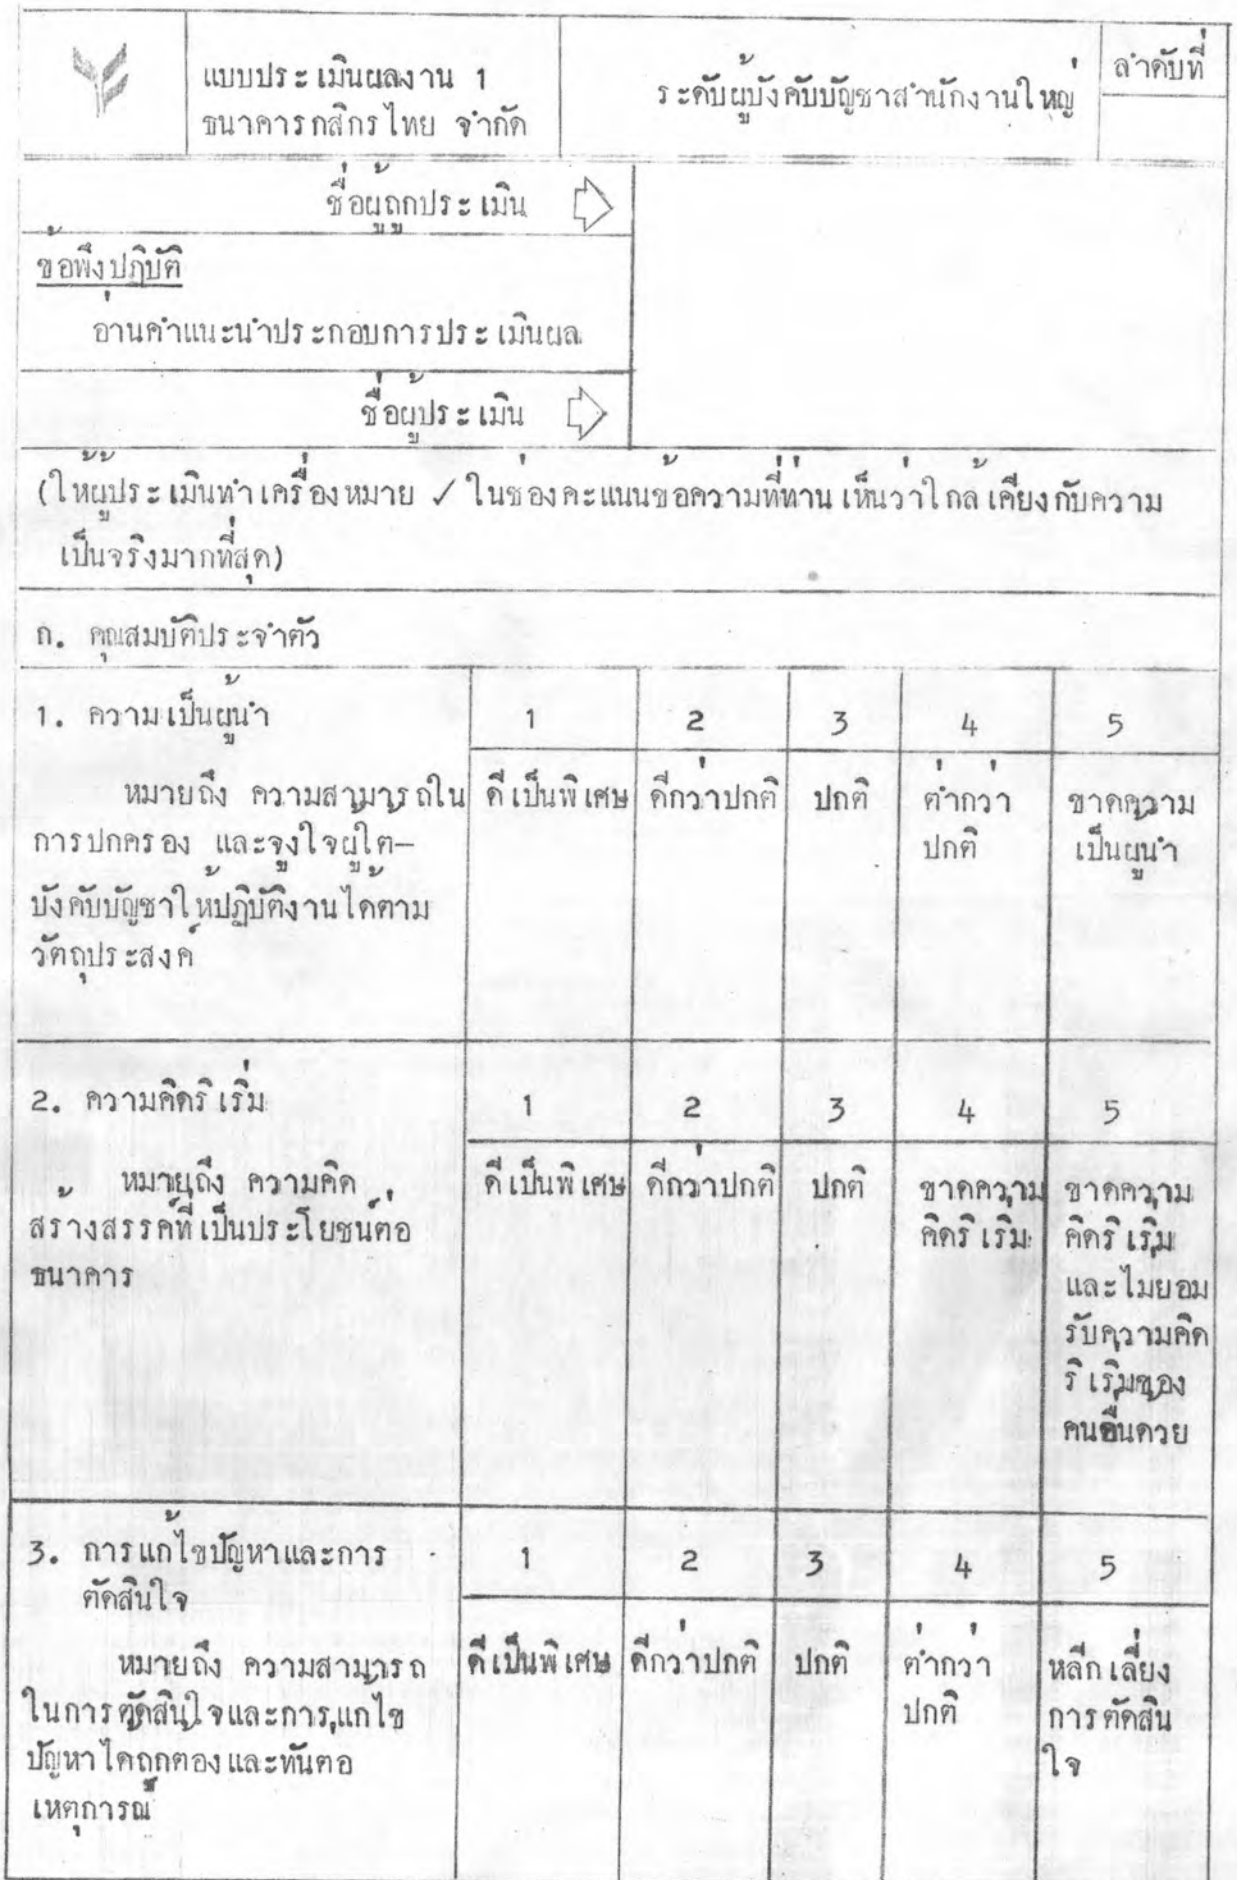 แบบประเมินผลงาน 1
ธนาคารกสิกรไทย จำกัด
ระดับผู้บังคับบัญชาสำนักงานใหญ่
ลำดับที่
ชื่อผู้ถูกประเมิน
ข้อพึงปฏิบัติ
อ่านคำแนะนำประกอบการประเมินผล
ชื่อผู้ประเมิน
(ให้ผู้ประเมินทำเครื่องหมาย ✓ ในช่องคะแนนข้อความที่ท่านเห็นว่าใกล้เคียงกับความ
เป็นจริงมากที่สุด)
ก. คุณสมบัติประจำตัว
1. ความเป็นผู้นำ
1 2 3 4 5
หมายถึง ความสามารถใน
การปกครอง และจูงใจผู้ใต้-
บังคับบัญชาให้ปฏิบัติงานได้ตาม
วัตถุประสงค์
ดีเป็นพิเศษ
ดีกว่าปกติ
ปกติ
ต่ำกว่า
ปกติ
ขาดความ
เป็นผู้นำ
2. ความคิดริเริ่ม
1 2 3 4 5
หมายถึง ความคิด
สร้างสรรค์ที่เป็นประโยชน์ต่อ
ธนาคาร
ดีเป็นพิเศษ
ดีกว่าปกติ
ปกติ
ขาดความ
คิดริเริ่ม
ขาดความ
คิดริเริ่ม
และไม่ยอม
รับความคิด
ริเริ่มของ
คนอื่นด้วย
3. การแก้ไขปัญหาและการ
ตัดสินใจ
1 2 3 4 5
หมายถึง ความสามารถ
ในการตัดสินใจและการแก้ไข
ปัญหาได้ถูกต้องและทันต่อ
เหตุการณ์
ดีเป็นพิเศษ
ดีกว่าปกติ
ปกติ
ต่ำกว่า
ปกติ
หลีกเลี่ยง
การตัดสิน
ใจ